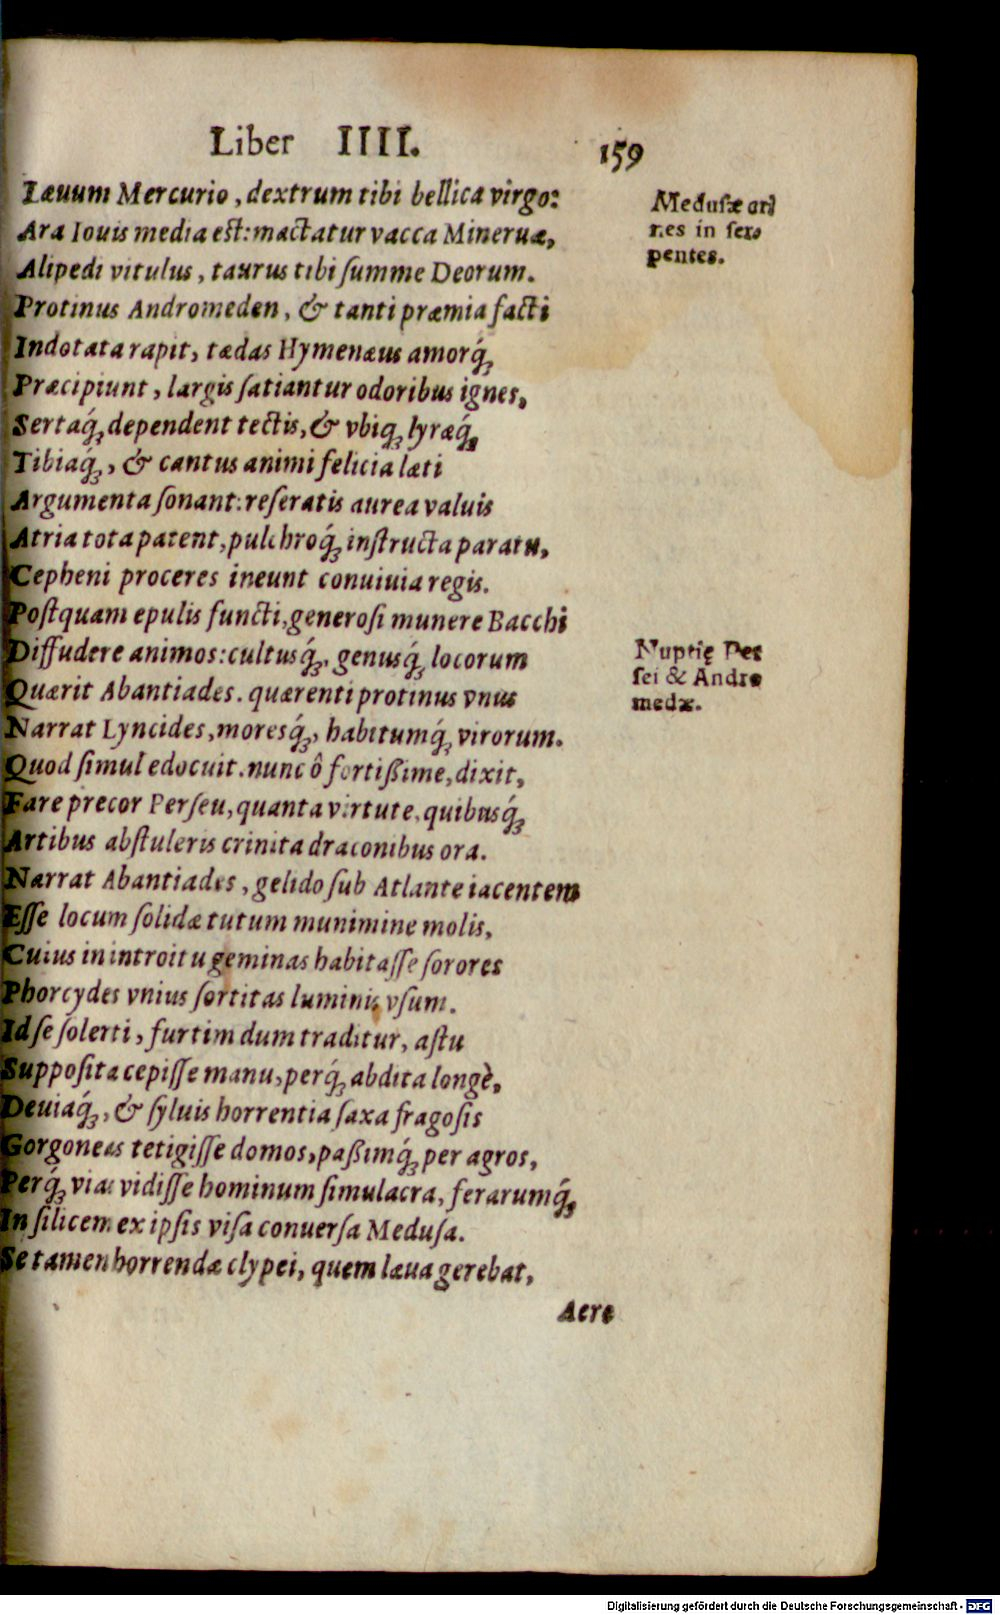 Liber IIII. 159
Læuum Mercurio, dextrum tibi bellica virgo:
Ara Iouis media est: mactatur vacca Mineruæ,
Alipedi vitulus, taurus tibi summe Deorum.
Protinus Andromeden, & tanti præmia facti
Indotata rapit, tædas Hymenæus amorq́;
Præcipiunt, largis satiantur odoribus ignes,
Sertaq́; dependent tectis, & vbiq; lyræq́;
Tibiaq́;, & cantus animi felicia læti
Argumenta sonant: reseratis aurea valuis
Atria tota patent, pulchroq́; instructa paratu,
Cepheni proceres ineunt conuiuia regis.
Postquam epulis functi, generosi munere Bacchi
Diffudere animos: cultusq́;, genusq́; locorum
Quærit Abantiades. quærenti protinus vnus
Narrat Lyncides, moresq́;, habitumq́; virorum.
Quod simul edocuit. nunc ô fortißime, dixit,
Fare precor Perseu, quanta virtute, quibusq́;
Artibus abstuleris crinita draconibus ora.
Narrat Abantiades, gelido sub Atlante iacentem
Esse locum solidæ tutum munimine molis,
Cuius in introitu geminas habitasse sorores
Phorcydes vnius sortitas luminis vsum.
Id se solerti, furtim dum traditur, astu
Supposita cepisse manu, perq́; abdita longè,
Deuiaq́;, & syluis horrentia saxa fragosis
Gorgoneas tetigisse domos, paßimq́; per agros,
Perq́; vias vidisse hominum simulacra, ferarumq́;,
In silicem ex ipsis visa conuersa Medusa.
Se tamen horrendæ clypei, quem læua gerebat,
Aere
Medusæ cri
nes in ser-
pentes.
Nuptię Per
sei & Andro
medæ.
Digitalisierung gefördert durch die Deutsche Forschungsgemeinschaft - DFG